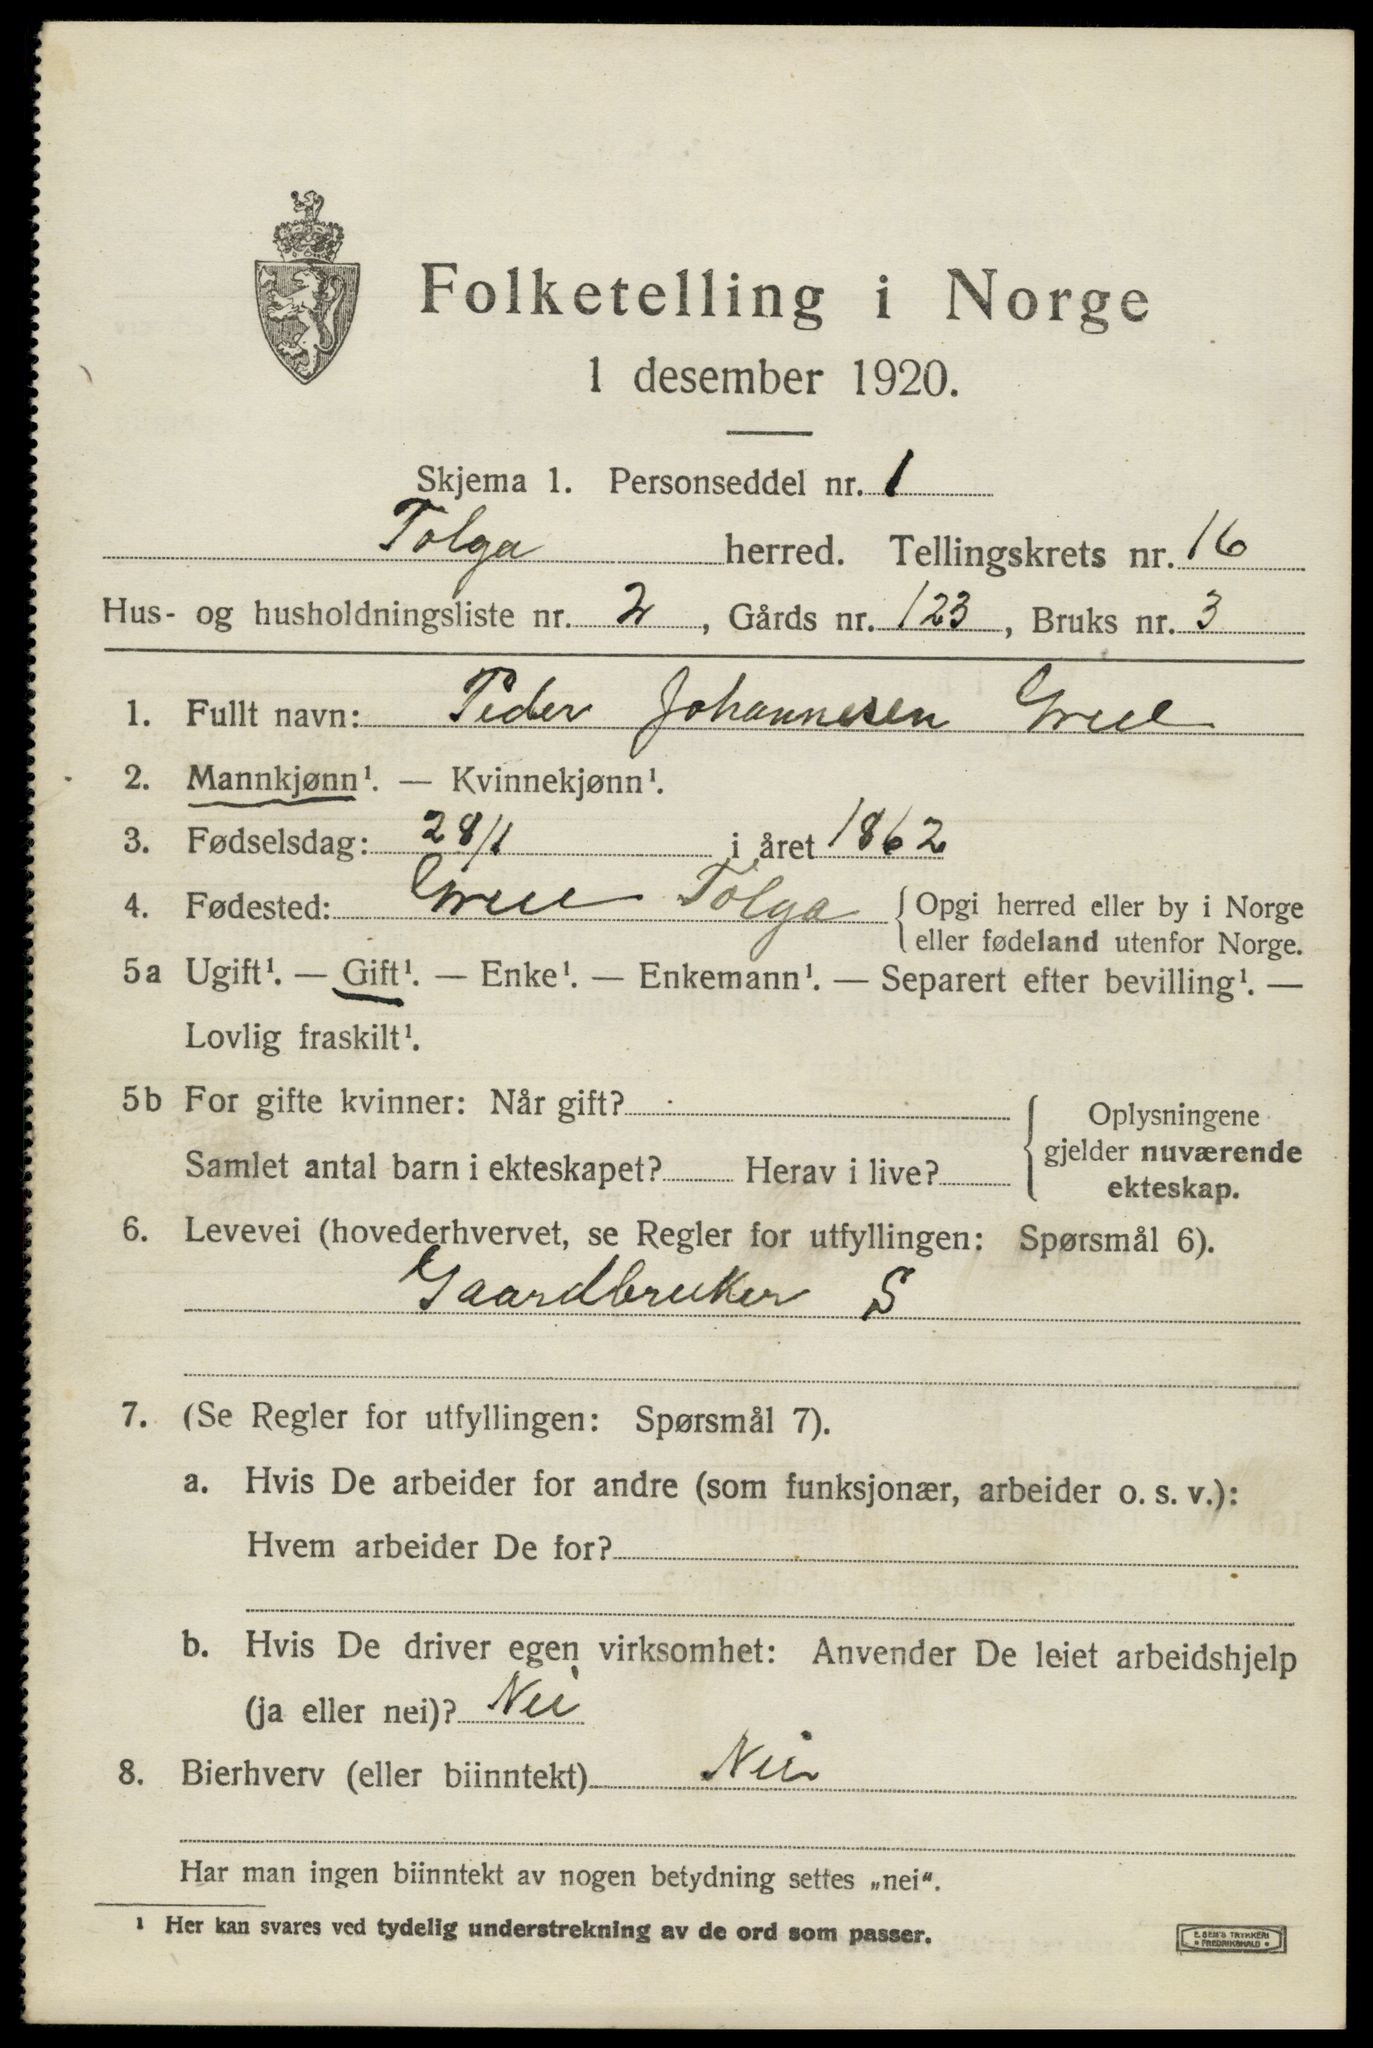 Folketelling i Norge
1 desember 1920.
Skjema 1. Personseddel nr. 1
Tolga herred. Tellingskrets nr. 16
Hus- og husholdningsliste nr. 2, Gårds nr. 123, Bruks nr. 3
1. Fullt navn: Peder Johannesen Gree
2. Mannkjønn¹. — Kvinnekjønn¹.
3. Fødselsdag: 28/1 i året 1862
4. Fødested: Gree Tolga { Opgi herred eller by i Norge
eller fødeland utenfor Norge.
5a Ugift¹. — Gift¹. — Enke¹. — Enkemann¹. — Separert efter bevilling¹. —
Lovlig fraskilt¹.
5b For gifte kvinner: Når gift?
Samlet antal barn i ekteskapet? Herav i live?
Oplysningene
gjelder nuværende
ekteskap.
6. Levevei (hovederhvervet, se Regler for utfyllingen: Spørsmål 6).
Gaardbruker S
7. (Se Regler for utfyllingen: Spørsmål 7).
a. Hvis De arbeider for andre (som funksjonær, arbeider o. s. v.):
Hvem arbeider De for?
b. Hvis De driver egen virksomhet: Anvender De leiet arbeidshjelp
(ja eller nei)? Nei
8. Bierhverv (eller biinntekt) Nei
Har man ingen biinntekt av nogen betydning settes „nei“.
¹ Her kan svares ved tydelig understrekning av de ord som passer.
E. SEM'S TRYKKERI
• FREDRIKSHALD •